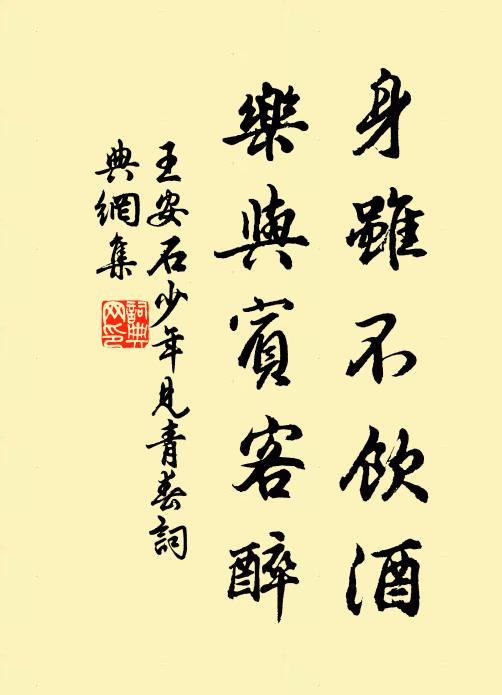 身雖不飲酒
樂與賓客醉
王安石少年見青春詞
典網集
詞典網印